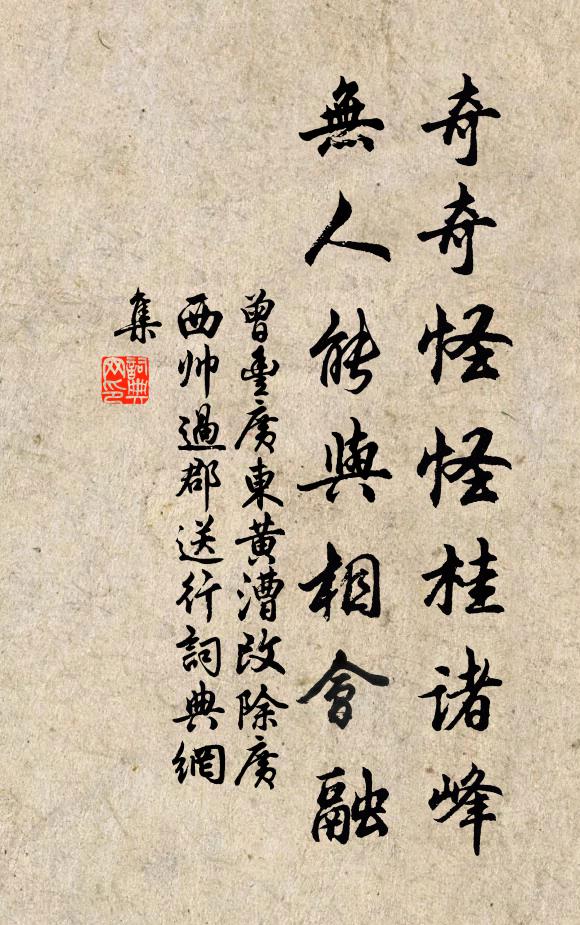 奇奇怪怪桂諸峰
無人能與相會融
曾豐廣東黃漕改除廣
西帥過郡送行詞典網
集
詞典
网印